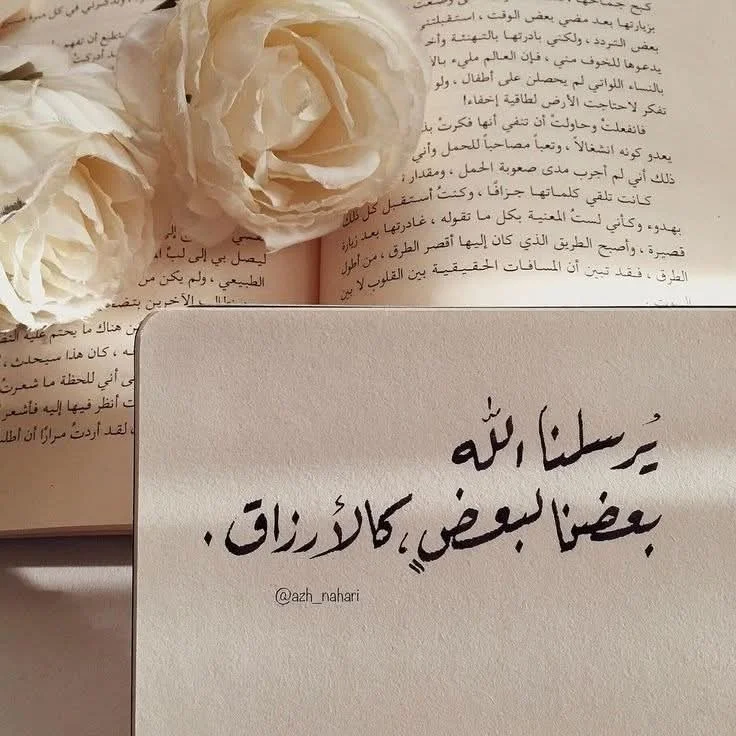 كبح جماحها
بزيارتها بعد مضي بعض الوقت ، استقبلتني
بعض التردد ، ولكني بادرتها بالتهنئة وأخ
يدعوها للخوف مني ، فإن العالم مليء بالأ
بالنساء اللواتي لم يحصلن على أطفال ، ولو
تفكر لاحتاجت الأرض لطاقية إخفاء!
فانفعلتْ وحاولتْ أن تنفي أنها فكرتْ بذ
يعدو كونه انشغالاً ، وتعباً مصاحباً للحمل وأني
ذلك أني لم أجرب مدى صعوبة الحمل ، ومقدار
كانت تلقي كلماتها جزافًا ، وكنتُ أستقبل كل ذلك
بهدوء وكأني لستُ المعنية بكل ما تقوله ، غادرتها بعد زيارة
قصيرة ، وأصبح الطريق الذي كان إليها أقصر الطرق ، من أطول
الطرق ، فقد تبين أن المسافات الحقيقية بين القلوب لا بين
ليصل بي إلى
الطبيعي ، ولم يكن من
الآخرين
ن هناك ما يحتم عليه
ه ، كان هذا سيحدث ،
ى أني للحظة ما شعرتُ
ت أنظر فيها إليه فأشعر
، لقد أردتُ مرارًا أن
يُرسلنا الله
بعضنا لبعضٍ، كالأرزاق.
@azh_nahari